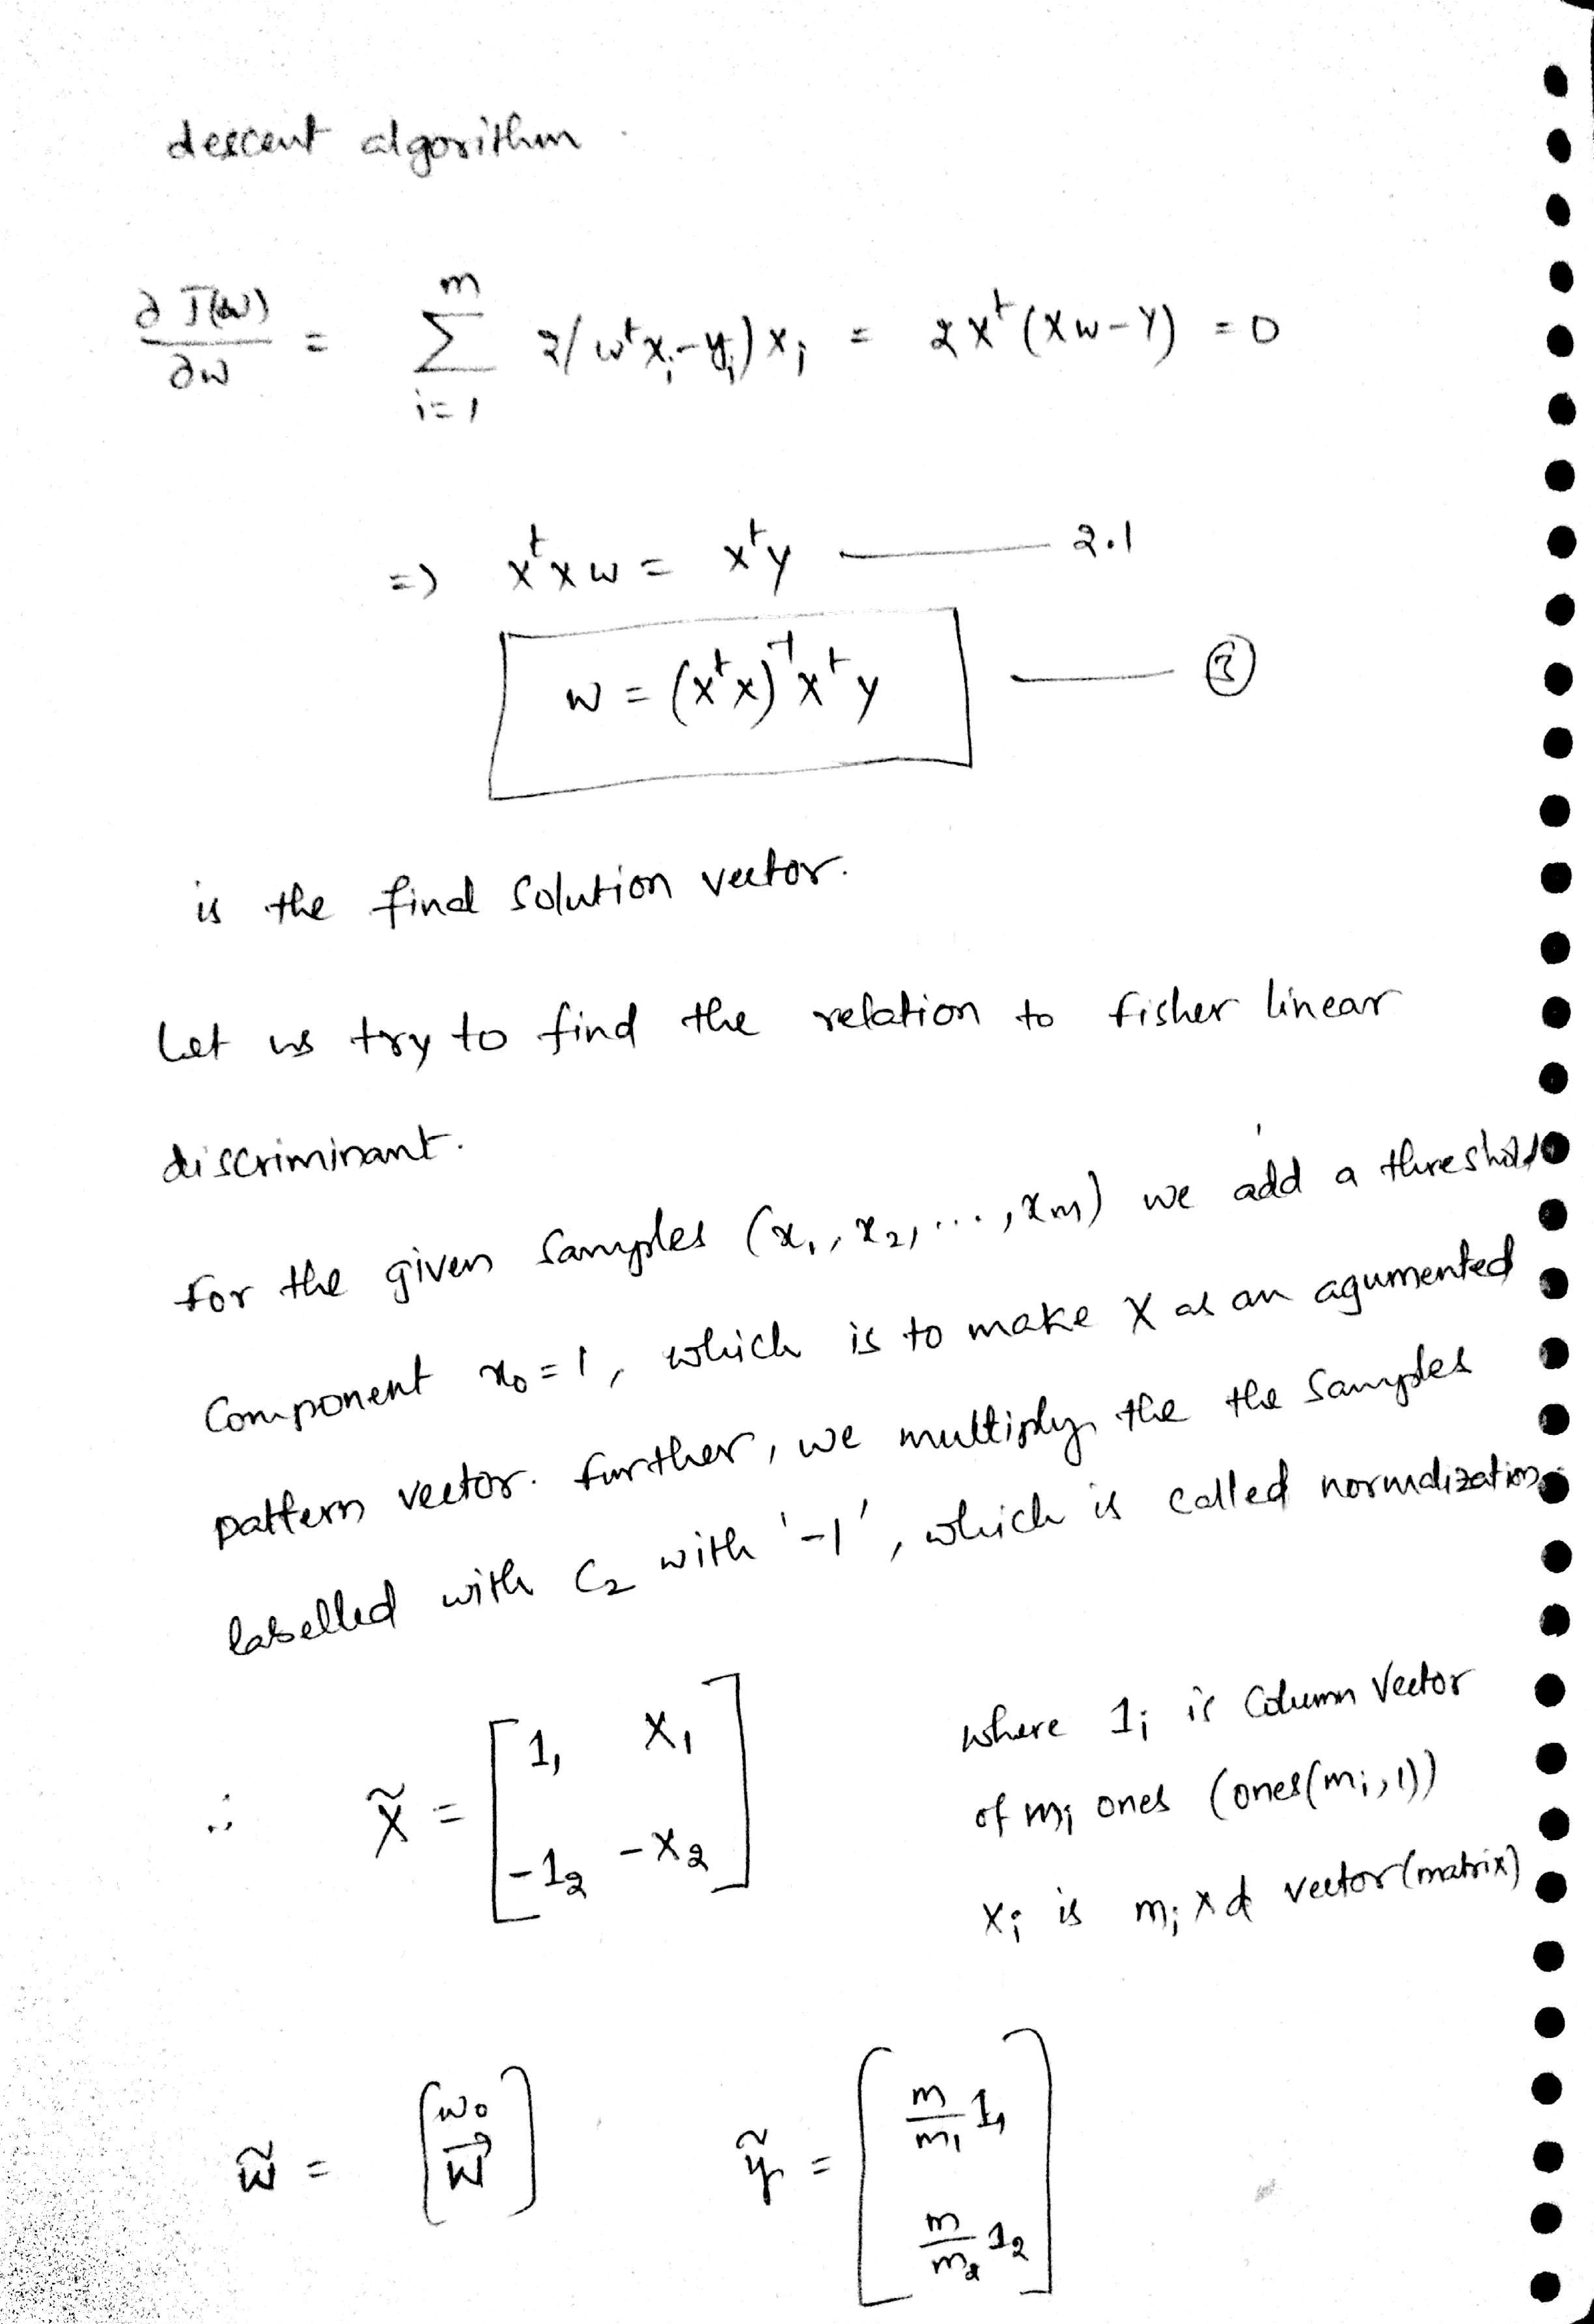 descent algorithm.
∂J(w)/∂w = Σ_{i=1}^{m} 2(wᵗxᵢ-yᵢ)xᵢ = 2Xᵗ(Xw-Y) = 0
=> XᵗXw = Xᵗy —— 2.1
w = (XᵗX)⁻¹Xᵗy —— ③
is the final solution vector.
Let us try to find the relation to fisher linear
discriminant.
For the given samples (x₁, x₂, ..., xm) we add a threshold
Component x₀ = 1, which is to make X as an agumented
pattern vector. further, we multiply the the samples
labelled with C₂ with '-1', which is called normalization.
∴ X̃ = [1₁ X₁; -1₂ -X₂] where 1ᵢ is Column Vector
of mᵢ ones (ones(mᵢ,1))
Xᵢ is mᵢ x d vector(matrix)
w̃ = [w₀; w⃗] ỹ = [m/m₁ 1₁; m/m₂ 1₂]